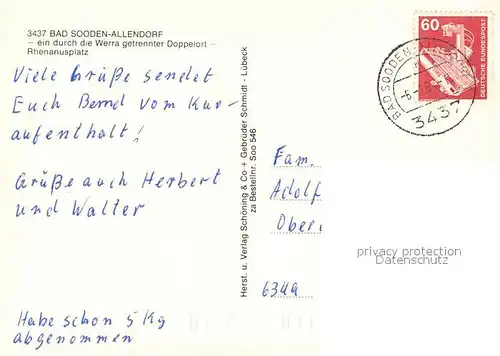 3437 BAD SOODEN-ALLENDORF
– ein durch die Werra getrennter Doppelort –
Rhenanusplatz
Viele Grüße sendet
Euch Bernd vom Kur-
aufenthalt!
Grüße auch Herbert
und Walter
Habe schon 5 Kg
abgenommen
Herst. u. Verlag Schöning & Co + Gebrüder Schmidt - Lübeck
za Bestellnr. Soo 546
60
DEUTSCHE BUNDESPOST
BAD SOODEN-
3437
Fam.
Adolf
Ober
privacy protection
Datenschutz